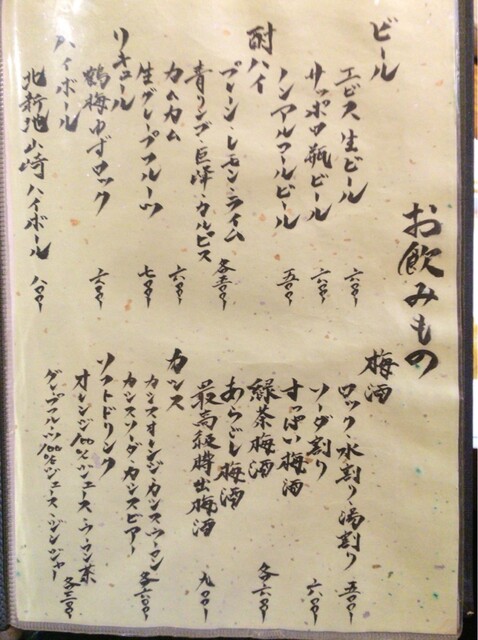 お飲みもの
ビール
エビス生ビール 六〇〇
サッポロ瓶ビール 六〇〇
ノンアルコールビール 五〇〇
酎ハイ
プレーン・レモン・ライム
青リンゴ・巨峰・カルピス 各五〇〇
カムカム 六〇〇
生グレープフルーツ 七〇〇
リキュール
鶴梅ゆずロック 六〇〇
ハイボール
北新地山崎ハイボール 八〇〇
梅酒
ロック 水割り 湯割り 五〇〇
ソーダ割り
すっぱい梅酒 六〇〇
緑茶梅酒
あらごし梅酒 各六〇〇
最高級 勝出梅酒 九〇〇
カシス
カシスオレンジ・カシスウーロン
カシスソーダ・カシスビアー 各六〇〇
ソフトドリンク
オレンジ100%ジュース・ウーロン茶
グレープフルーツ100%ジュース・ジンジャー 各三〇〇